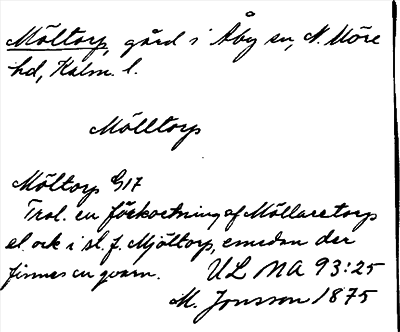 Möltorp, gård i Åby sn, N. Möre
hd, Kalm. l.
Mölltorp
Möltorp G17
Trol. en förkortning af Möllaretorp
el. ock i st. f. Mjöltorp, emedan der
finnes en qvarn. ULMA 93:25
M. Jonsson 1875